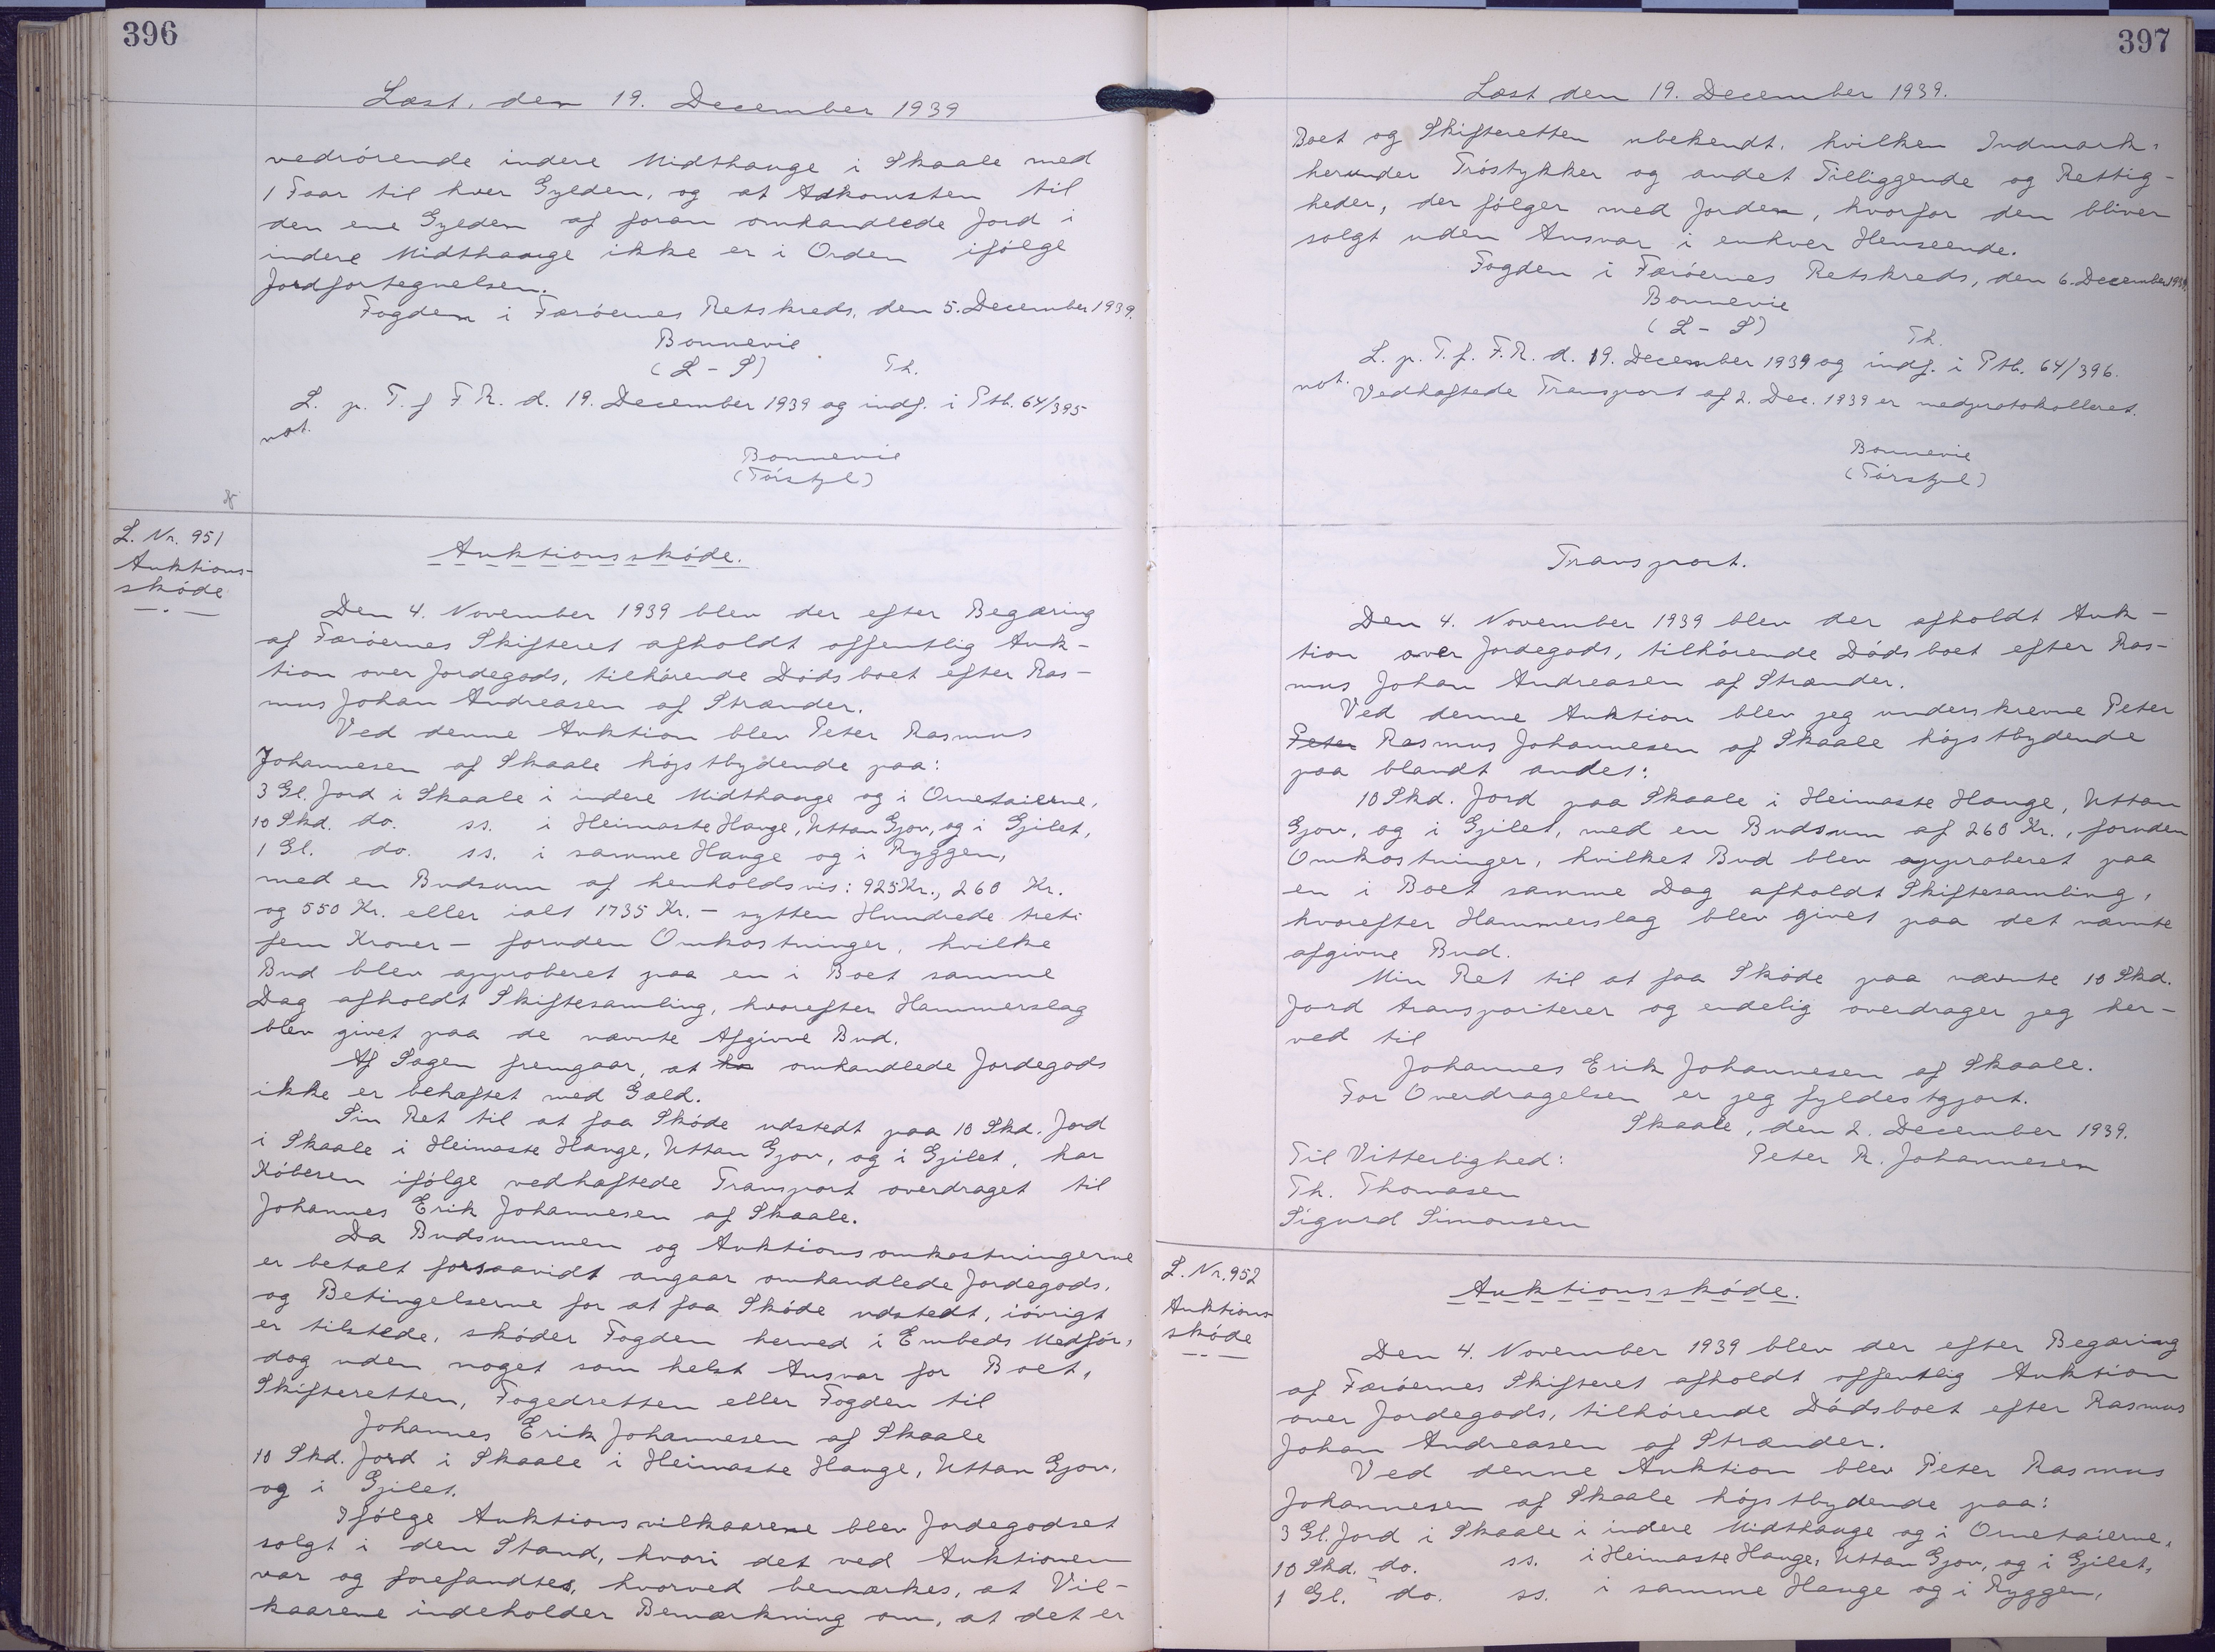 396
Læst, den 19. December 1939
vedrörende indere Midthauge i Skaale med
1 Faar til hver Gylden, og at Adkomsten til
den ene Gylden af foran omhandlede Jord i
indere Midthauge ikke er i Orden ifölge
Jordfortegnelsen.
Fogden i Færöernes Retskreds, den 5. December 1939.
Bonnevie
(L-S) Th.
L. p. T. f F R. d. 19. December 1939 og indf. i Ptb. 64/395
not.
Bonnevie
L. Nr. 951
Auktions-
sköde
Auktionssköde.
Den 4. November 1939 blev der efter Begæring
af Færöernes Skifteret afholdt offentlig Auk-
tion over Jordegods, tilhörende Dödsboet efter Ras-
mus Johan Andreasen af Strænder.
Ved denne Auktion blev Peter Rasmus
Johannesen af Skaale höjstbydende paa:
3 Gl. Jord i Skaale i indere Midthauge og i Ornetaierne,
10 Skd. do. ss. i Heimaste Hauge, Uttan Gjov, og i Gjilet,
1 Gl. do. ss. i samme Hauge og i Ryggen,
med en Budsum af henholdsvis: 925 Kr., 260 Kr.
og 550 Kr. eller ialt 1735 Kr. - sytten Hundrede treti
fem Kroner - foruden Omkostninger, hvilke
Bud blev approberet paa en i Boet samme
Dag afholdt Skiftesamling, hvorefter Hammerslag
blev givet paa de nævnte Afgivne Bud.
Af Sagen fremgaar, at omhandlede Jordegods
ikke er behæftet med Gæld.
Sin Ret til at faa Sköde udstedt paa 10 Skd. Jord
i Skaale i Heimaste Hauge, Uttan Gjov, og i Gjilet, har
Köberen ifölge vedhæftede Transport overdraget til
Johannes Erik Johannesen af Skaale.
Da Budsummen og Auktionsomkostningerne
er betalt forsaavidt angaar omhandlede Jordegods,
og Betingelserne for at faa Sköde udstedt, iövrigt
er tilstede, sköder Fogden herved i Embeds Medför,
dog uden noget som helst Ansvar for Boet,
Skifteretten, Fogedretten eller Fogden til
Johannes Erik Johannesen af Skaale
10 Skd. Jord i Skaale i Heimaste Hauge, Uttan Gjov,
og i Gjilet.
Ifölge Auktionsvilkaarene blev Jordegodset
solgt i den Stand, hvori det ved Auktionen
var og forefandtes, hvorved bemærkes, at Vil-
kaarene indeholder Bemærkning om, at det er
397
Læst den 19. December 1939.
Boet og Skifteretten ubekendt, hvilken Indmark,
herunder Tröstykker og andet Tilliggende og Rettig-
heder, der fölger med Jorden, hvorfor den bliver
solgt uden Ansvar i enhver Henseende.
Fogden i Færöernes Retskreds, den 6. December 1939.
Bonnevie
(L - S) Th.
L. p. T. f. F. R. d. 19. December 1939 og indf. i Ptb. 64/396.
not. Vedhæftede Transport af 2. Dec. 1939 er medprotokolleret.
Bonnevie
Transport.
Den 4. November 1939 blev der afholdt Auk-
tion over Jordegods, tilhörende Dödsboet efter Ras-
mus Johan Andreasen af Strænder.
Ved denne Auktion blev jeg underskrevne Peter
Peter Rasmus Johannesen af Skaale höjstbydende
paa blandt andet:
10 Skd. Jord paa Skaale i Heimaste Hauge, Uttan
Gjov, og i Gjilet, med en Budsum af 260 Kr., foruden
Omkostninger, hvilket Bud blev approberet paa
en i Boet samme Dag afholdt Skiftesamling,
hvorefter Hammerslag blev givet paa det nævnte
afgivne Bud.
Min Ret til at faa Sköde paa nævnte 10 Skd.
Jord transporterer og endelig overdrager jeg her-
ved til
Johannes Erik Johannesen af Skaale.
For Overdragelsen er jeg fyldestgjort.
Skaale, den 2. December 1939.
Til Vitterlighed: Peter R. Johannesen
Th. Thomasen
Sigurd Simonsen
L. Nr. 952
Auktions-
sköde
Auktionssköde.
Den 4. November 1939 blev der efter Begæring
af Færöernes Skifteret afholdt offentlig Auktion
over Jordegods, tilhörende Dödsboet efter Rasmus
Johan Andreasen af Strænder.
Ved denne Auktion blev Peter Rasmus
Johannesen af Skaale höjstbydende paa:
3 Gl. Jord i Skaale i indere Midthauge og i Ornetaierne,
10 Skd. do. ss. i Heimaste Hauge, Uttan Gjov, og i Gjilet,
1 Gl. do. ss. i samme Hauge og i Ryggen,